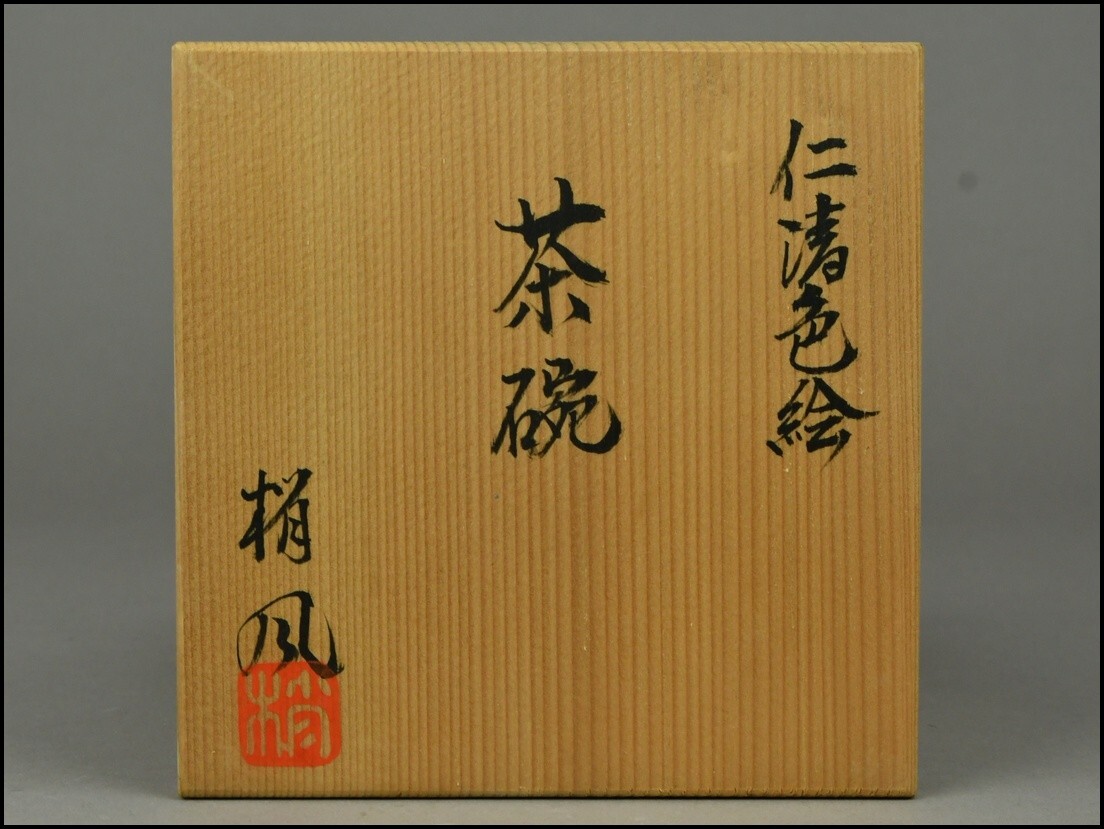 仁清色絵
茶碗
梢風
梢